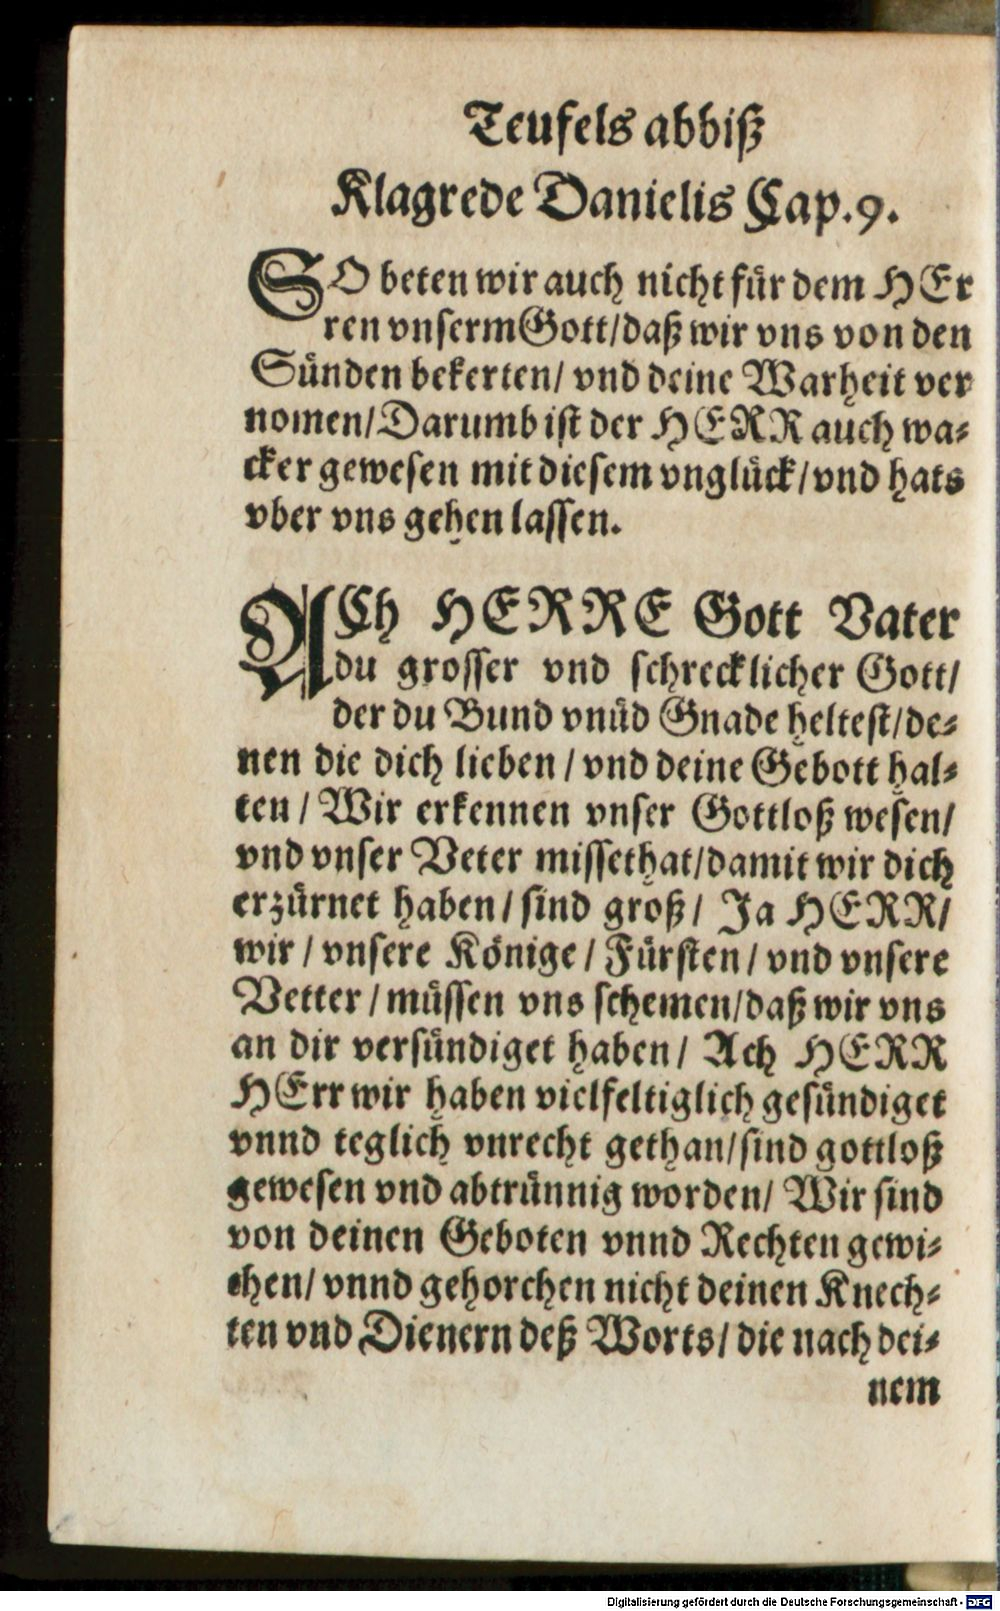 Teufels abbiß
Klagrede Danielis Cap. 9.
SO beten wir auch nicht für dem HEr
ren vnserm Gott/daß wir vns von den
Sünden bekerten/ vnd deine Warheit ver
nomen/Darumb ist der HERR auch wa-
cker gewesen mit diesem vnglück/vnd hats
vber vns gehen lassen.
ACh HERRE Gott Vater
du grosser vnd schrecklicher Gott/
der du Bund vnüd Gnade heltest/de-
nen die dich lieben / vnd deine Gebott hal-
ten / Wir erkennen vnser Gottloß wesen/
vnd vnser Veter missethat/damit wir dich
erzürnet haben / sind groß / Ja HERR/
wir / vnsere Könige / Fürsten / vnd vnsere
Vetter / müssen vns schemen/daß wir vns
an dir versündiget haben / Ach HERR
HErr wir haben vielfeltiglich gesündiget
vnnd teglich vnrecht gethan/sind gottloß
gewesen vnd abtrünnig worden/ Wir sind
von deinen Geboten vnnd Rechten gewi-
chen/ vnnd gehorchen nicht deinen Knech-
ten vnd Dienern deß Worts/ die nach dei-
nem
Digitalisierung gefördert durch die Deutsche Forschungsgemeinschaft - DFG